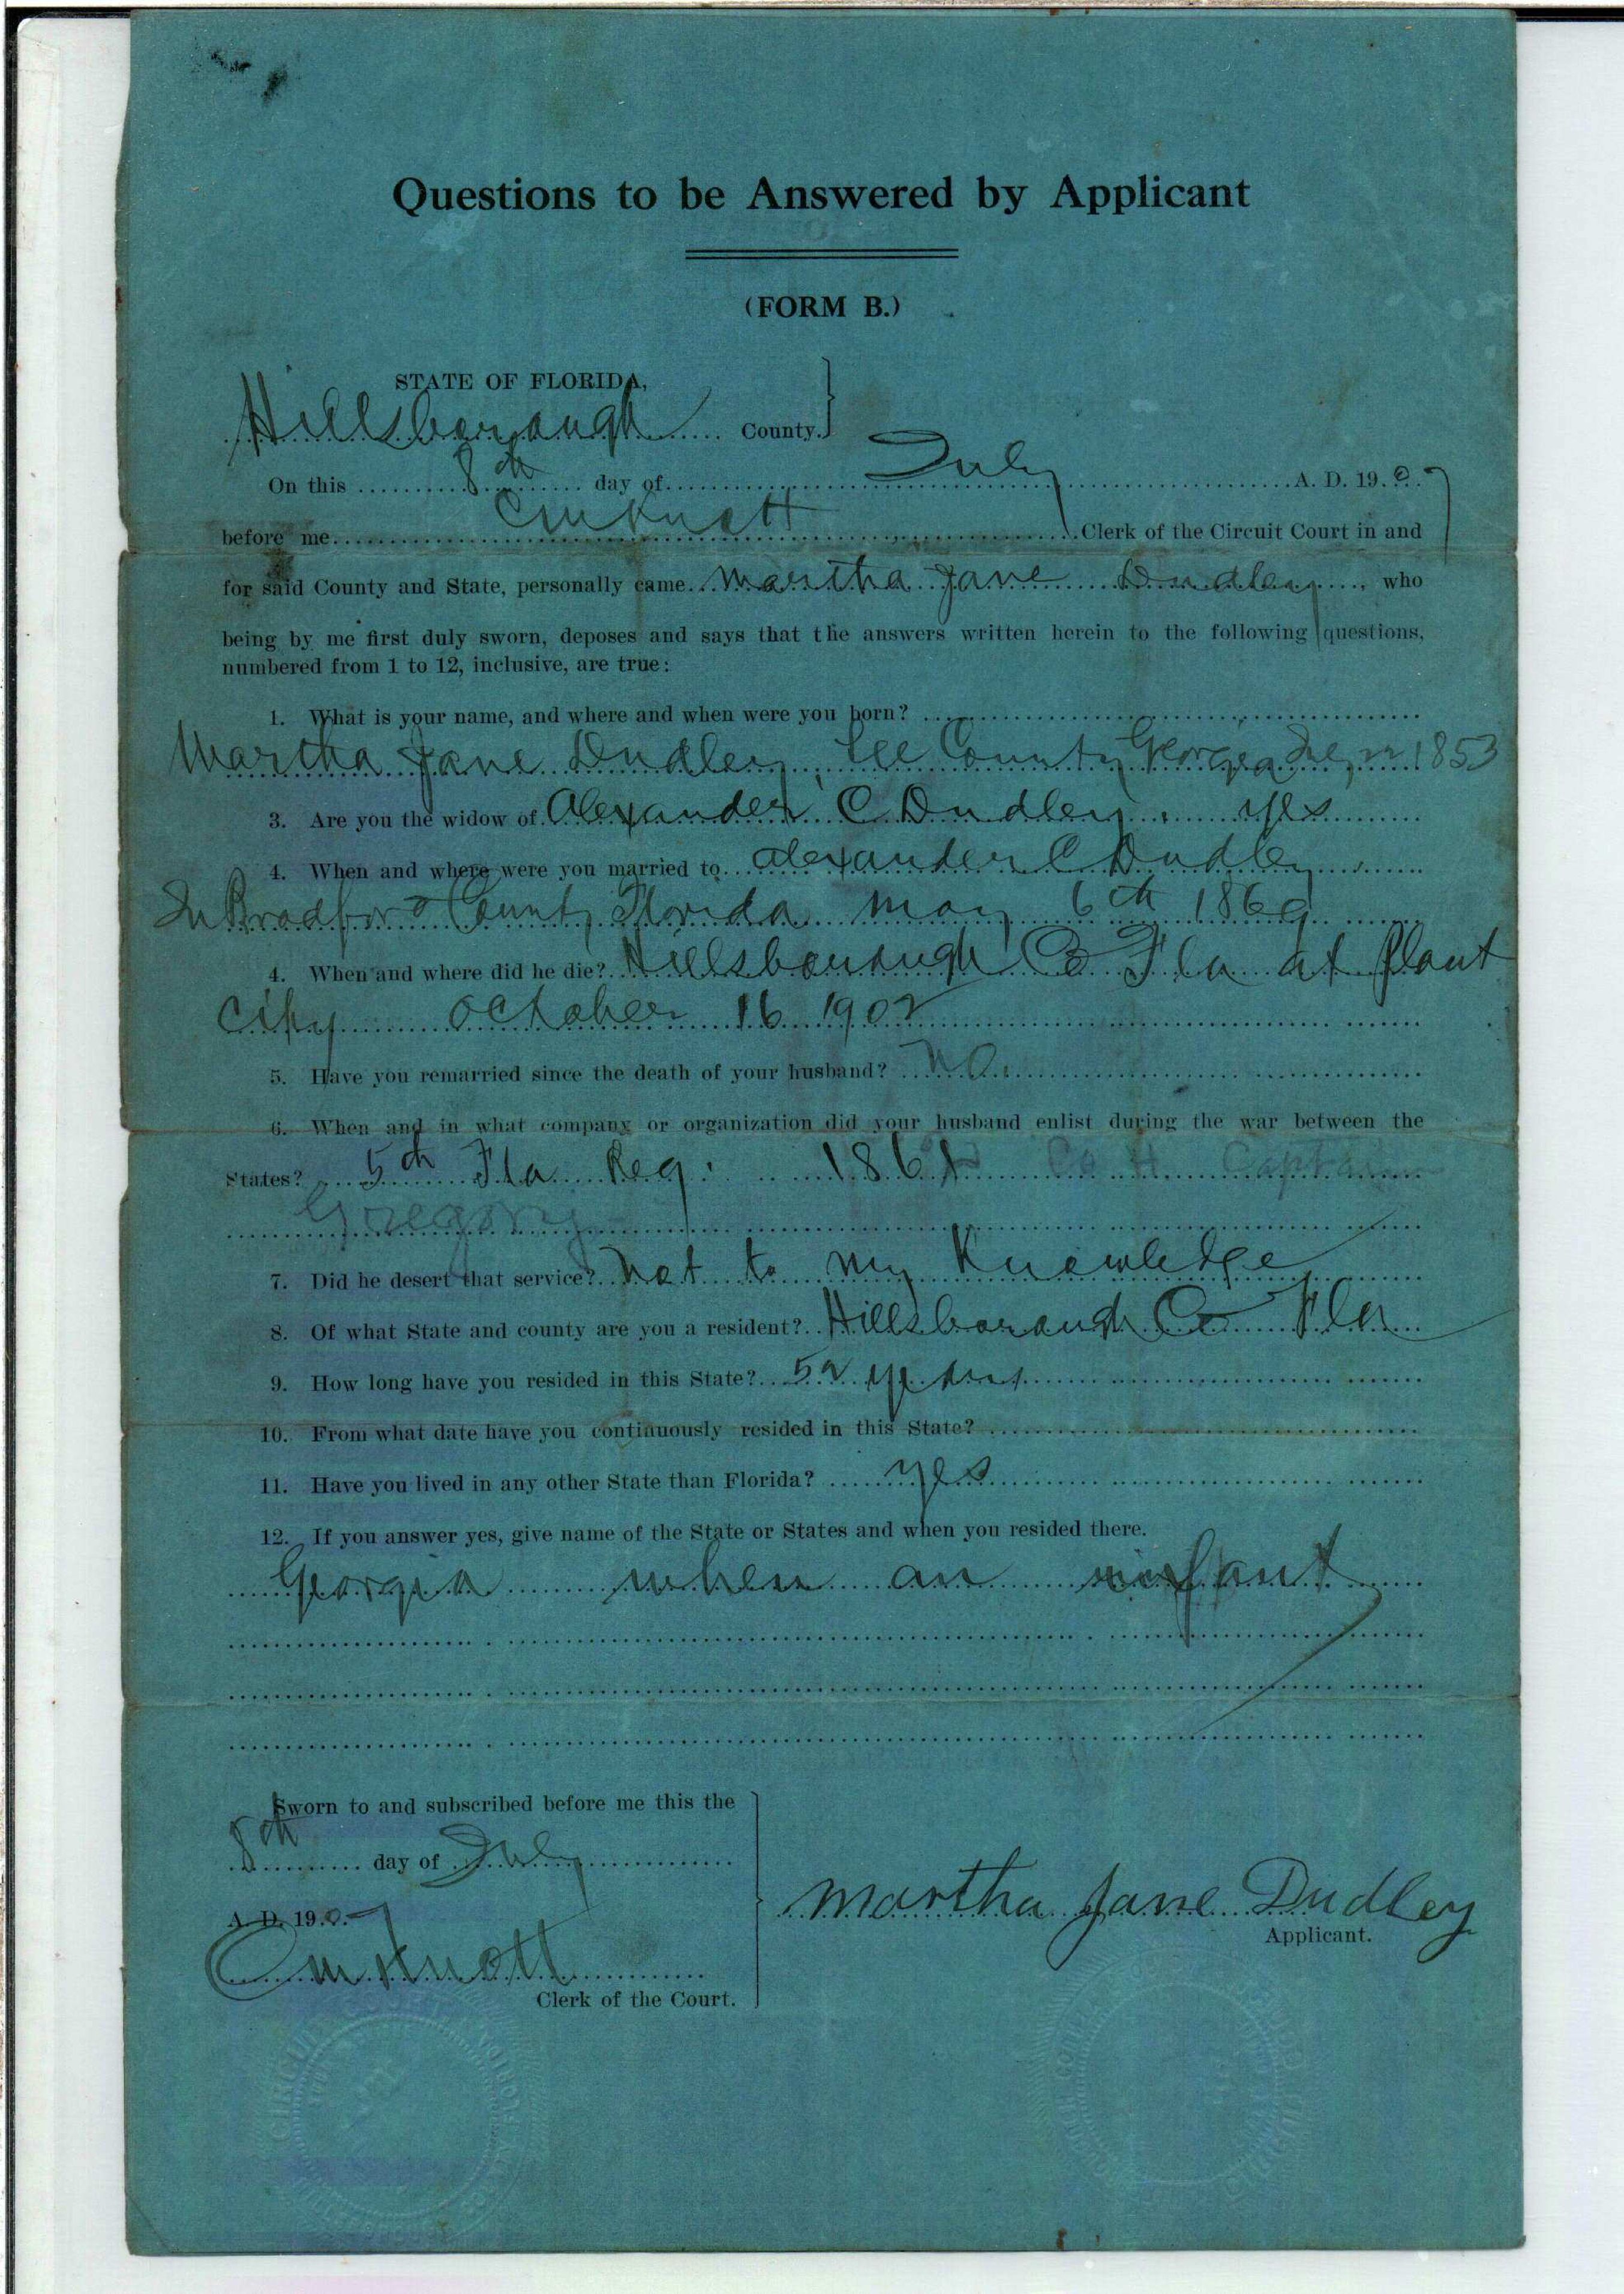 Questions to be Answered by Applicant
(FORM B.)
STATE OF FLORIDA,
Hillsborough County.
On this 8th day of July A. D. 1907
before me C M Knott Clerk of the Circuit Court in and
for said County and State, personally came Martha Jane Dudley, who
being by me first duly sworn, deposes and says that the answers written herein to the following questions,
numbered from 1 to 12, inclusive, are true:
1. What is your name, and where and when were you born?
Martha Jane Dudley, Lee County Georgia 1853
3. Are you the widow of Alexander C Dudley. yes
4. When and where were you married to Alexander C Dudley
In Bradford County Florida May 6th 1869
4. When and where did he die? Hillsborough Co Fla at Plant
City October 16 1902
5. Have you remarried since the death of your husband? No.
6. When and in what company or organization did your husband enlist during the war between the
States? 5th Fla Reg. Co H Captain
Gregory
7. Did he desert that service? Not to my Knowledge
8. Of what State and county are you a resident? Hillsborough Co Fla
9. How long have you resided in this State? 52 years
10. From what date have you continuously resided in this State?
11. Have you lived in any other State than Florida? yes
12. If you answer yes, give name of the State or States and when you resided there.
Georgia when an infant
Sworn to and subscribed before me this the
8th day of July
A. D. 1907
C M Knott
Clerk of the Court.
Martha Jane Dudley
Applicant.